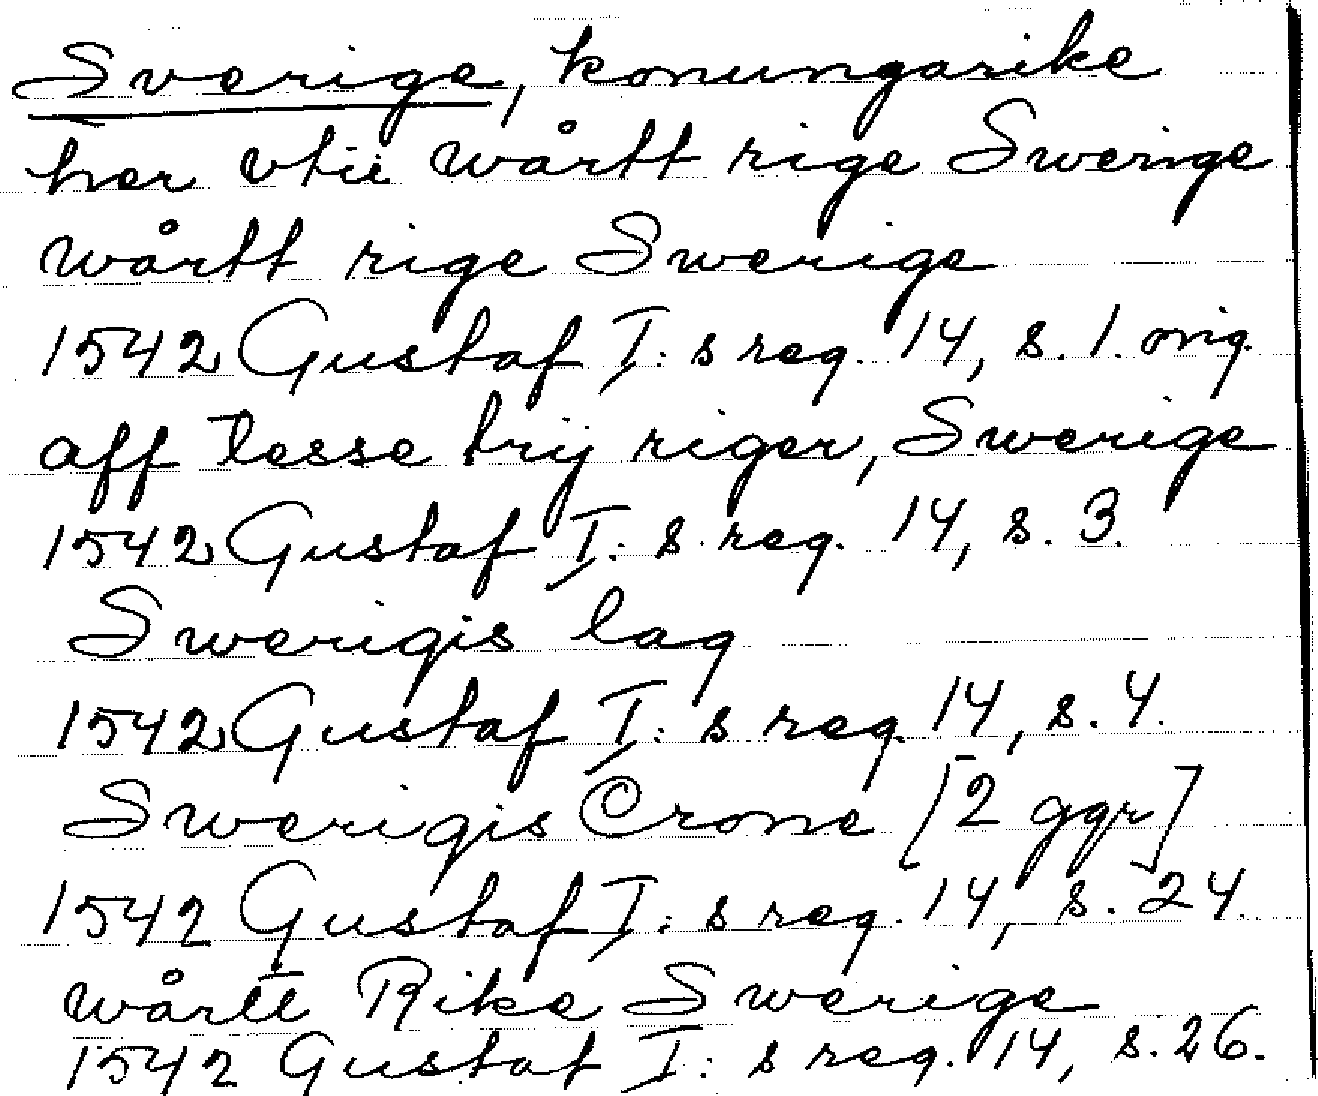 Sverige, konungarike
her vtii wårtt rige Swerige
wårtt rige Swerige
1542 Gustaf I: s reg. 14, s. 1. orig.
aff tesse trij riger, Swerige
1542 Gustaf I: s. reg. 14, s. 3.
Swerigis lag
1542 Gustaf I: s reg. 14, s. 4.
Swerigis Crone [2 ggr]
1542 Gustaf I: s reg. 14, s. 24.
wårtt Rike Swerige
1542 Gustaf I: s reg. 14, s. 26.